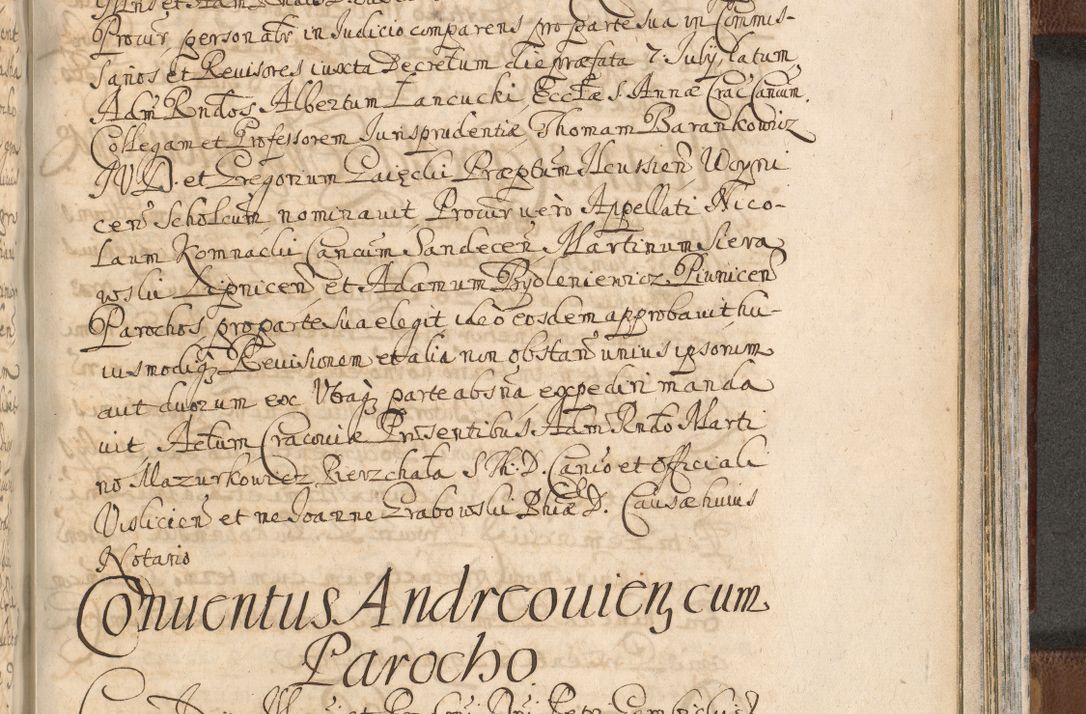 Procur personatr in Judicio comparens pro parte sua in Commis-
sarios et Revisores iuxta Decretum die præfata 7 July latum,
Adm Rndos Albertum Łancucki, Eccłæ S Annæ Crac Canum,
Collegam et Professorem Jurisprudentiæ Thomam Barankowicz
JVD. et Gregorium Præptum Ilcussien Woyni
cen Scholcum nominavit Procur vero Appellati Nico-
laum Romnacki Cancum Sandecen, Martinum Siera
wski Lipnicen et Adamum Bydleniewicz Piwnicen
Parochos, pro parte sua elegit ideo eosdem approbavit hu-
iusmodiq Revisionem et alia non obstan unius ipsorum
aut duorum ex Utraq parte absña expediri manda
vit, Actum Cracoviæ Præsentibus Adm Rndo Marti
no Mazurkowicz Pierzchała S Th. D. Canco et Officiali
Vislicien et me Joanne Grabowski Phiæ D. Causæ huius
Notario
Conventus Andreovien, cum
Parocho.